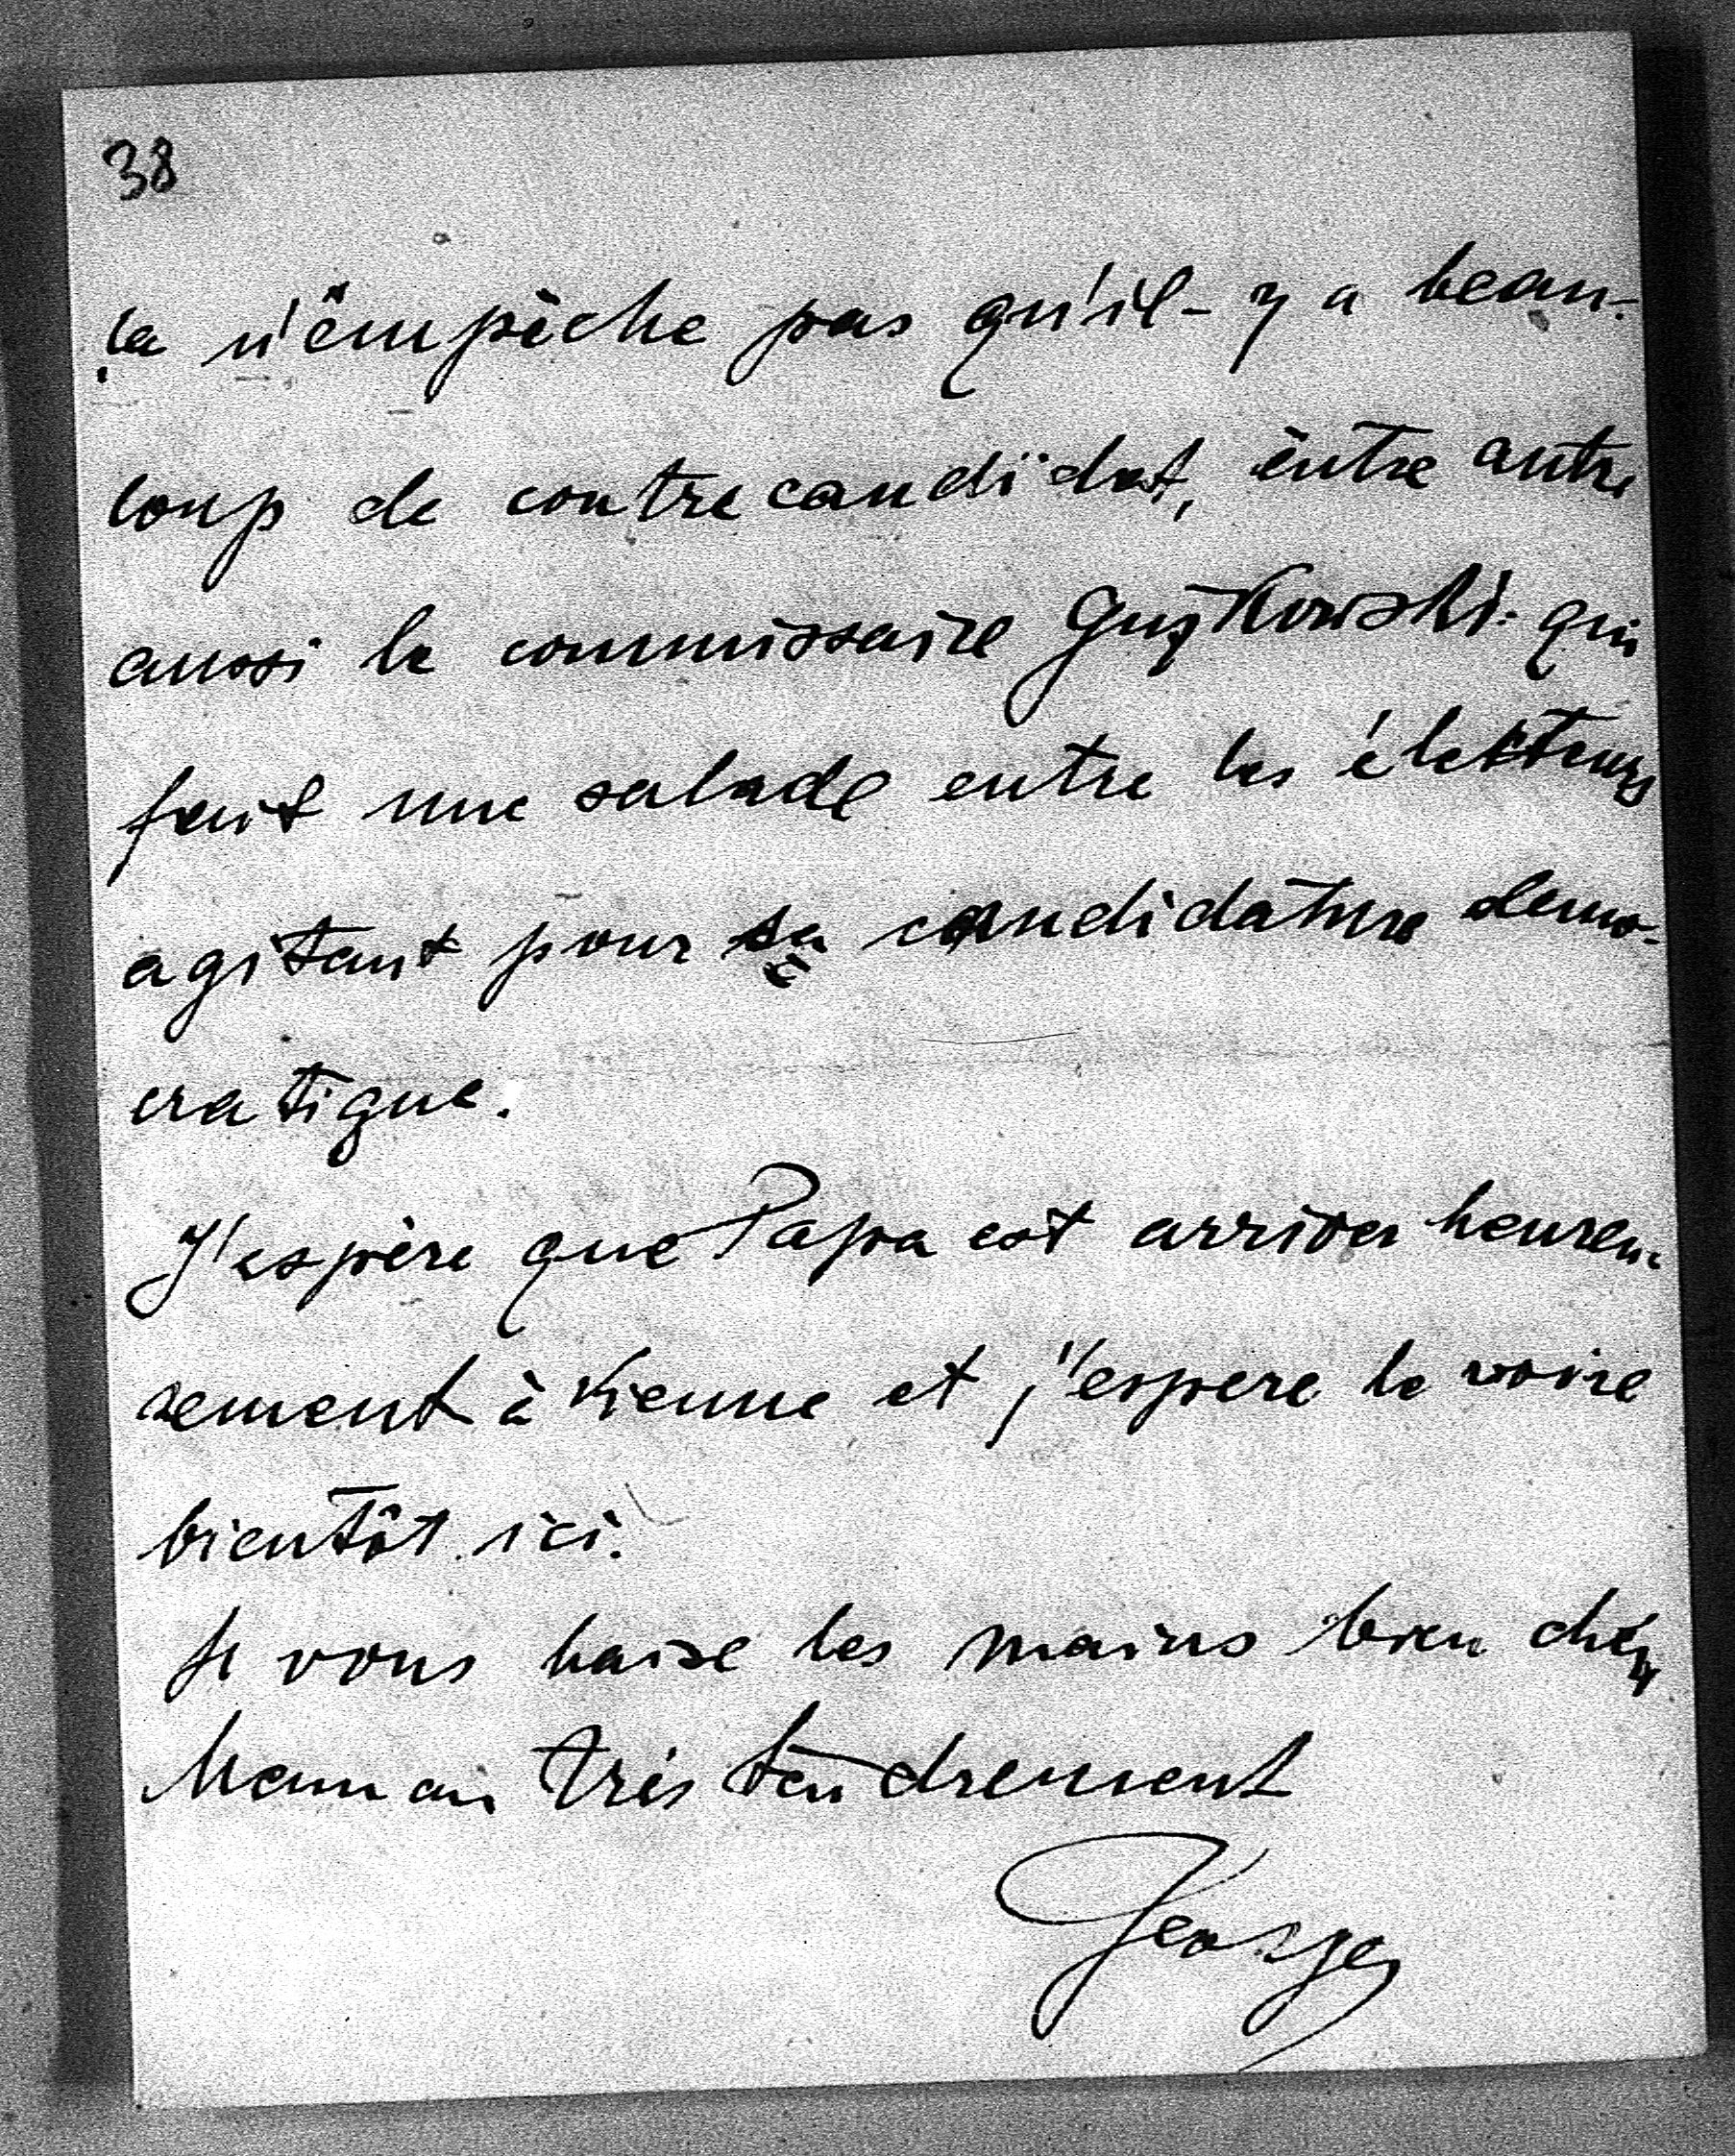 38
ça n'émpèche pas qu'il-y a beau-
coup de contrecandidat, èntre autre
aussi le commissaire Guzkowski qui
fait une salade entre les élekteurs
agitant pour sa candidature demo-
cratique.
J'espère que Papa est arriver heureu-
sement à Vienne et j'espere le voire
bientôt ici.
Je vous baise les mains bien chér
Maman très tendrement
Georges